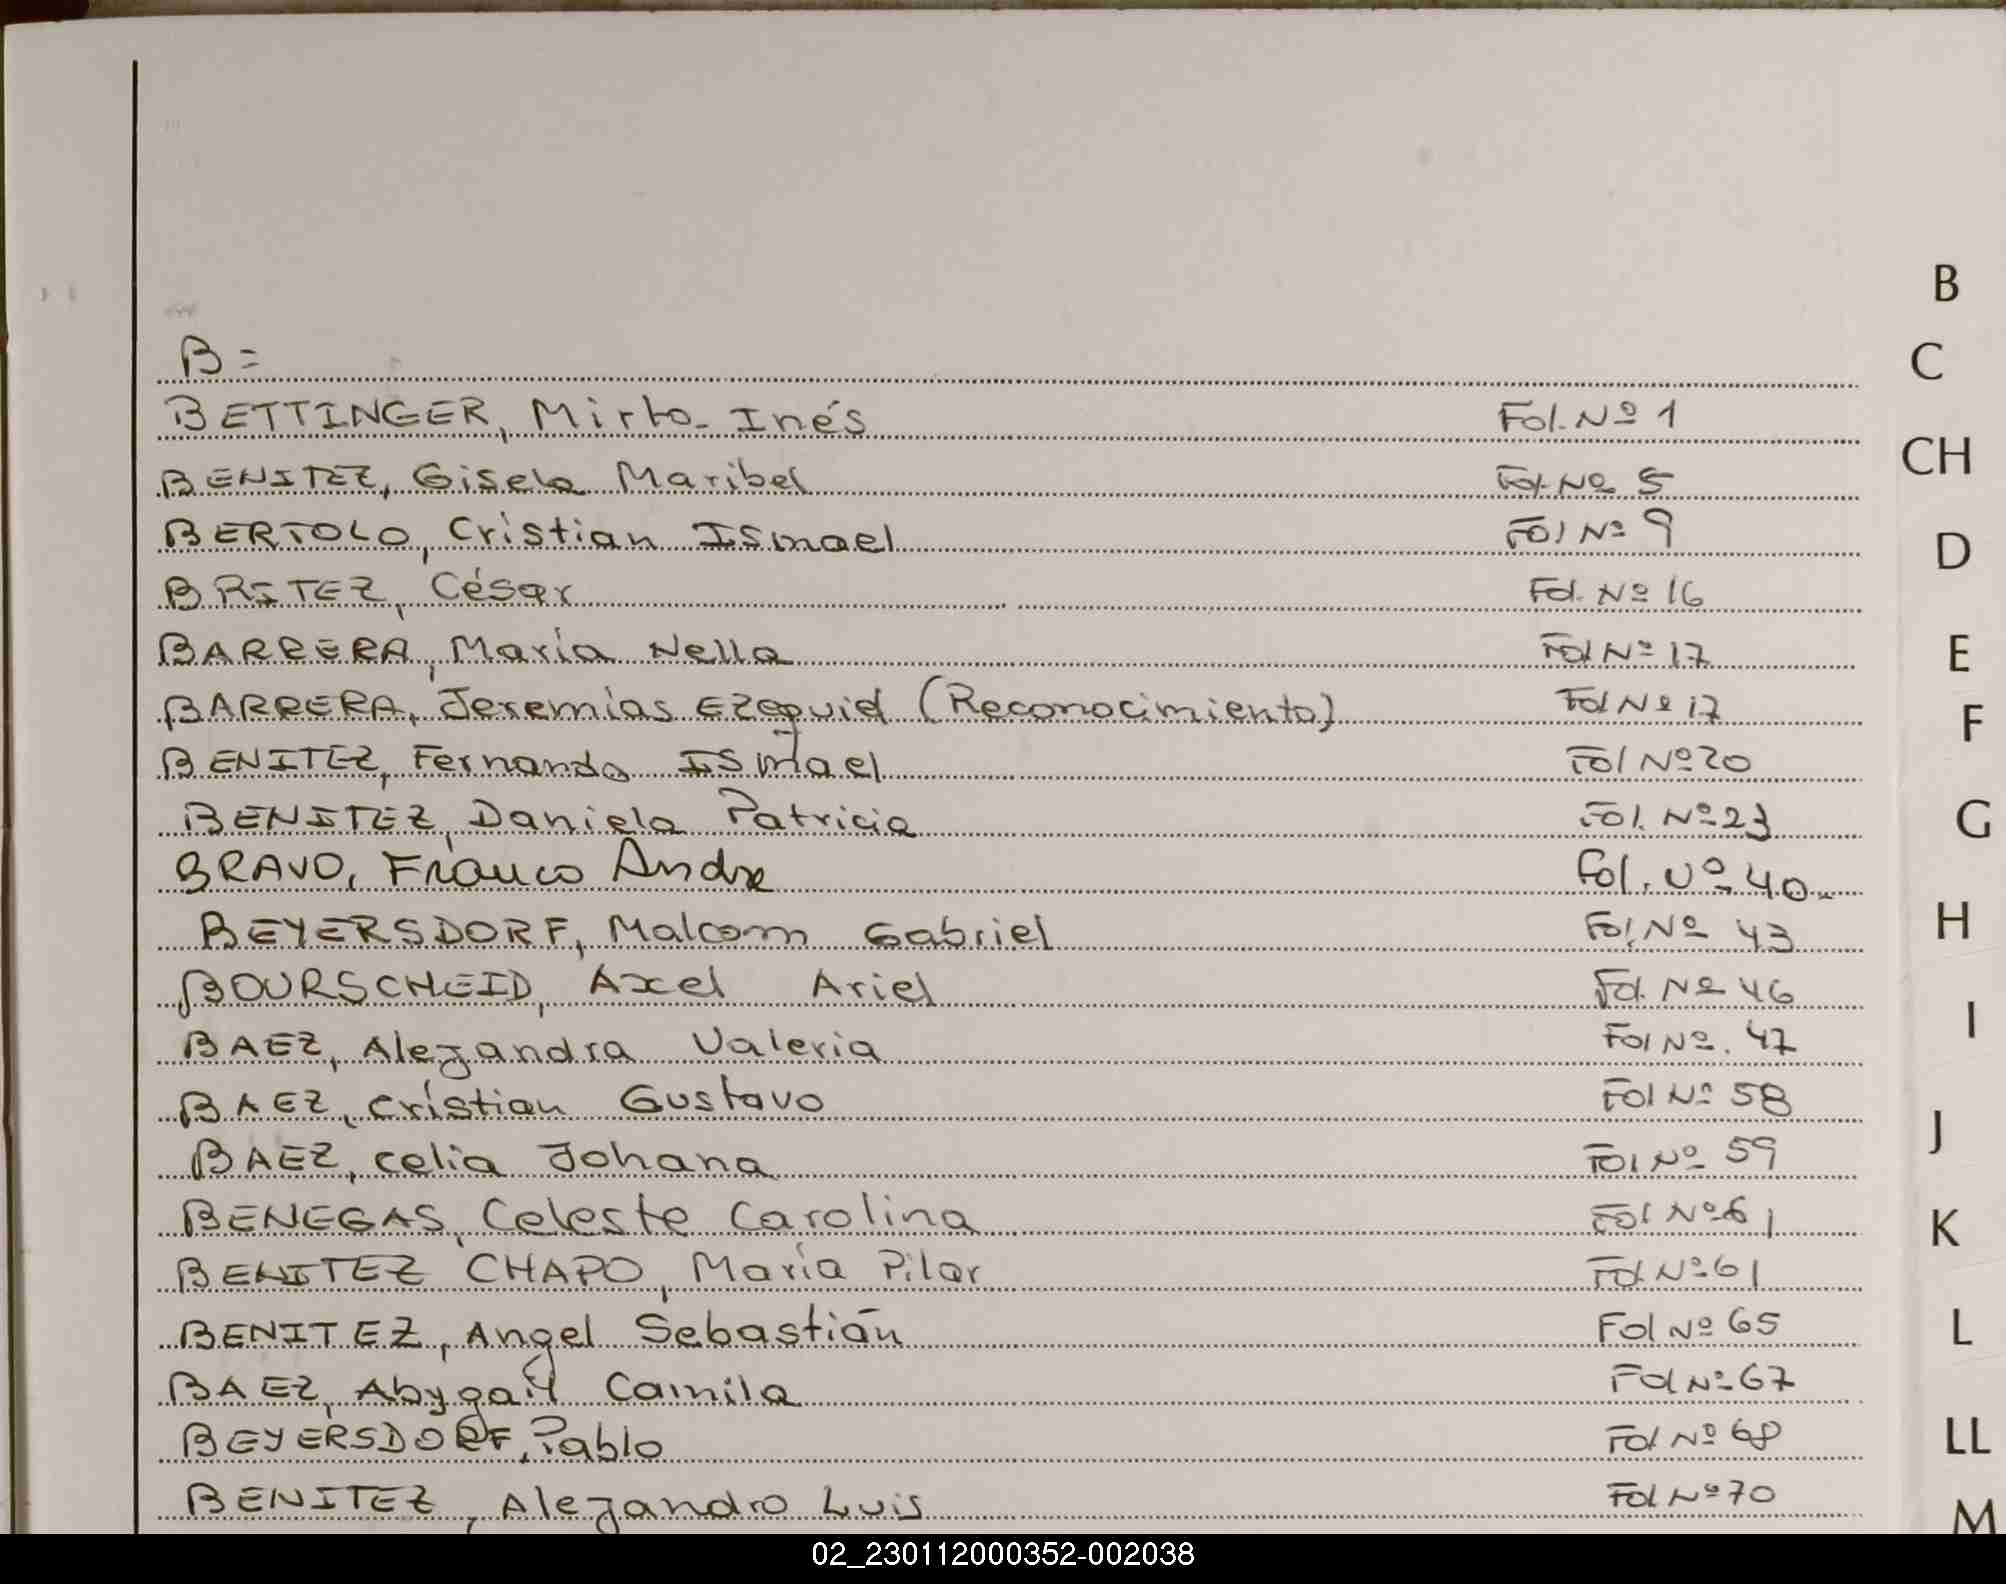 B
C
CH
D
E
F
G
H
I
J
K
L
LL
M
B=
BETTINGER, Mirta Inés Fol. Nº 1
BENITEZ, Gisela Maribel Fol. Nº 5
BERTOLO, Cristian Ismael Fol Nº 9
BRITEZ, César Fol. Nº 16
BARRERA, María Nella Fol Nº 17
BARRERA, Jeremías Ezequiel (Reconocimiento) Fol Nº 17
BENITEZ, Fernando Ismael Fol Nº 20
BENITEZ, Daniela Patricia Fol. Nº 23
BRAVO, Franco Andre Fol. Nº 40-
BEYERSDORF, Malcom Gabriel Fol. Nº 43
BOURSCHEID, Axel Ariel Fol. Nº 46
BAEZ, Alejandra Valeria Fol Nº. 47
BAEZ, Cristian Gustavo Fol Nº 58
BAEZ, Celia Johana Fol Nº 59
BENEGAS, Celeste Carolina Fol Nº 61
BENITEZ CHAPO, María Pilar Fol. Nº 61
BENITEZ, Angel Sebastián Fol Nº 65
BAEZ, Abygail Camila Fol Nº 67
BEYERSDORF, Pablo Fol Nº 68
BENITEZ, Alejandro Luis Fol Nº 70
02_230112000352-002038